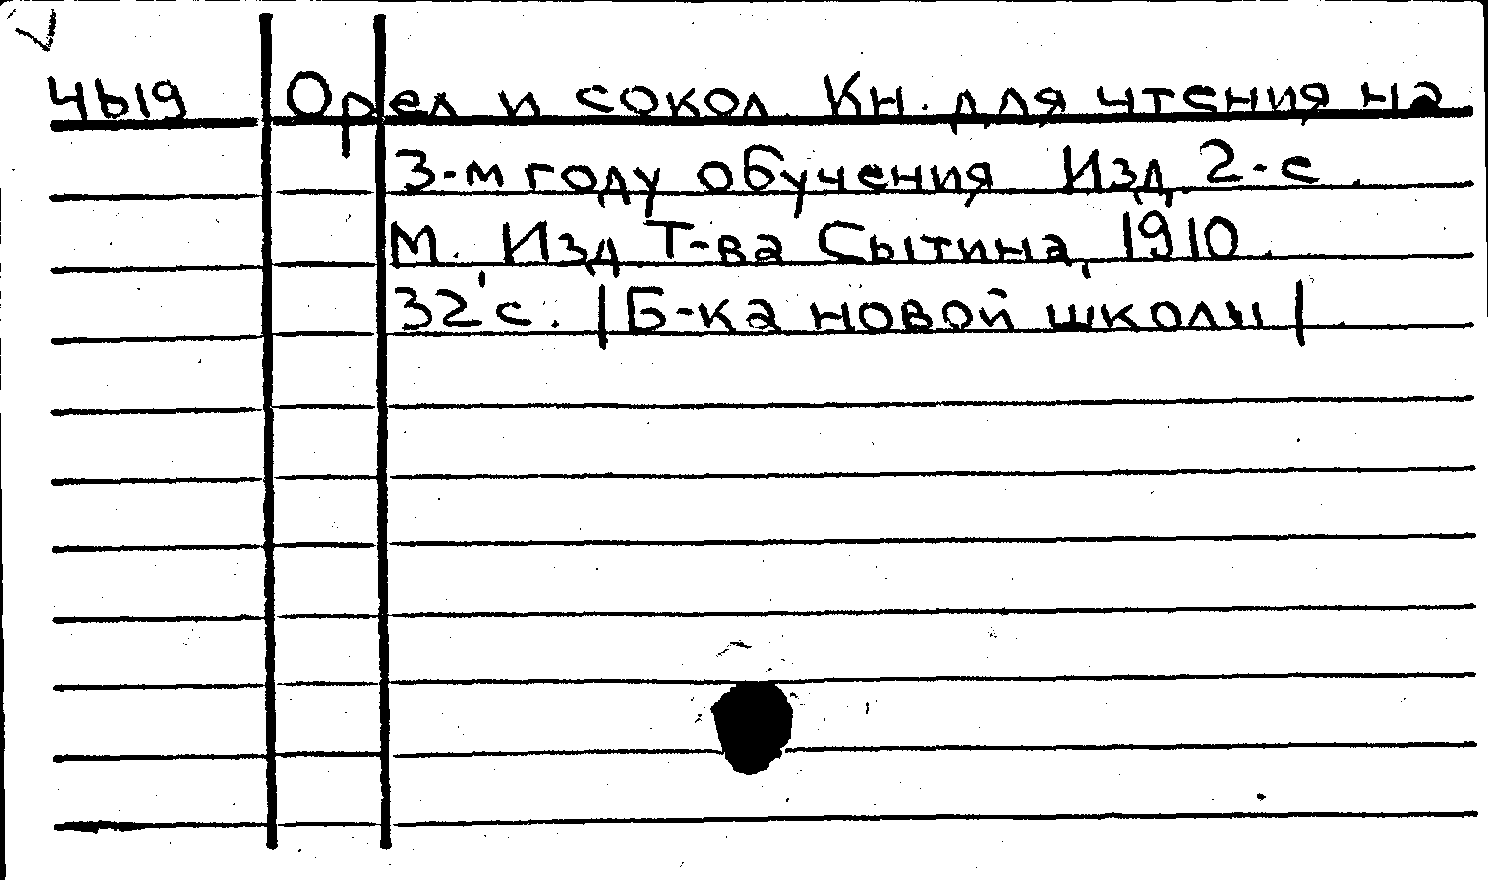 4ы9 Орел и сокол. Кн. для чтения на
3-м году обучения. Изд. 2-е.
М. Изд. Т-ва Сытина, 1910.
32 с. |Б-ка новой школы|.